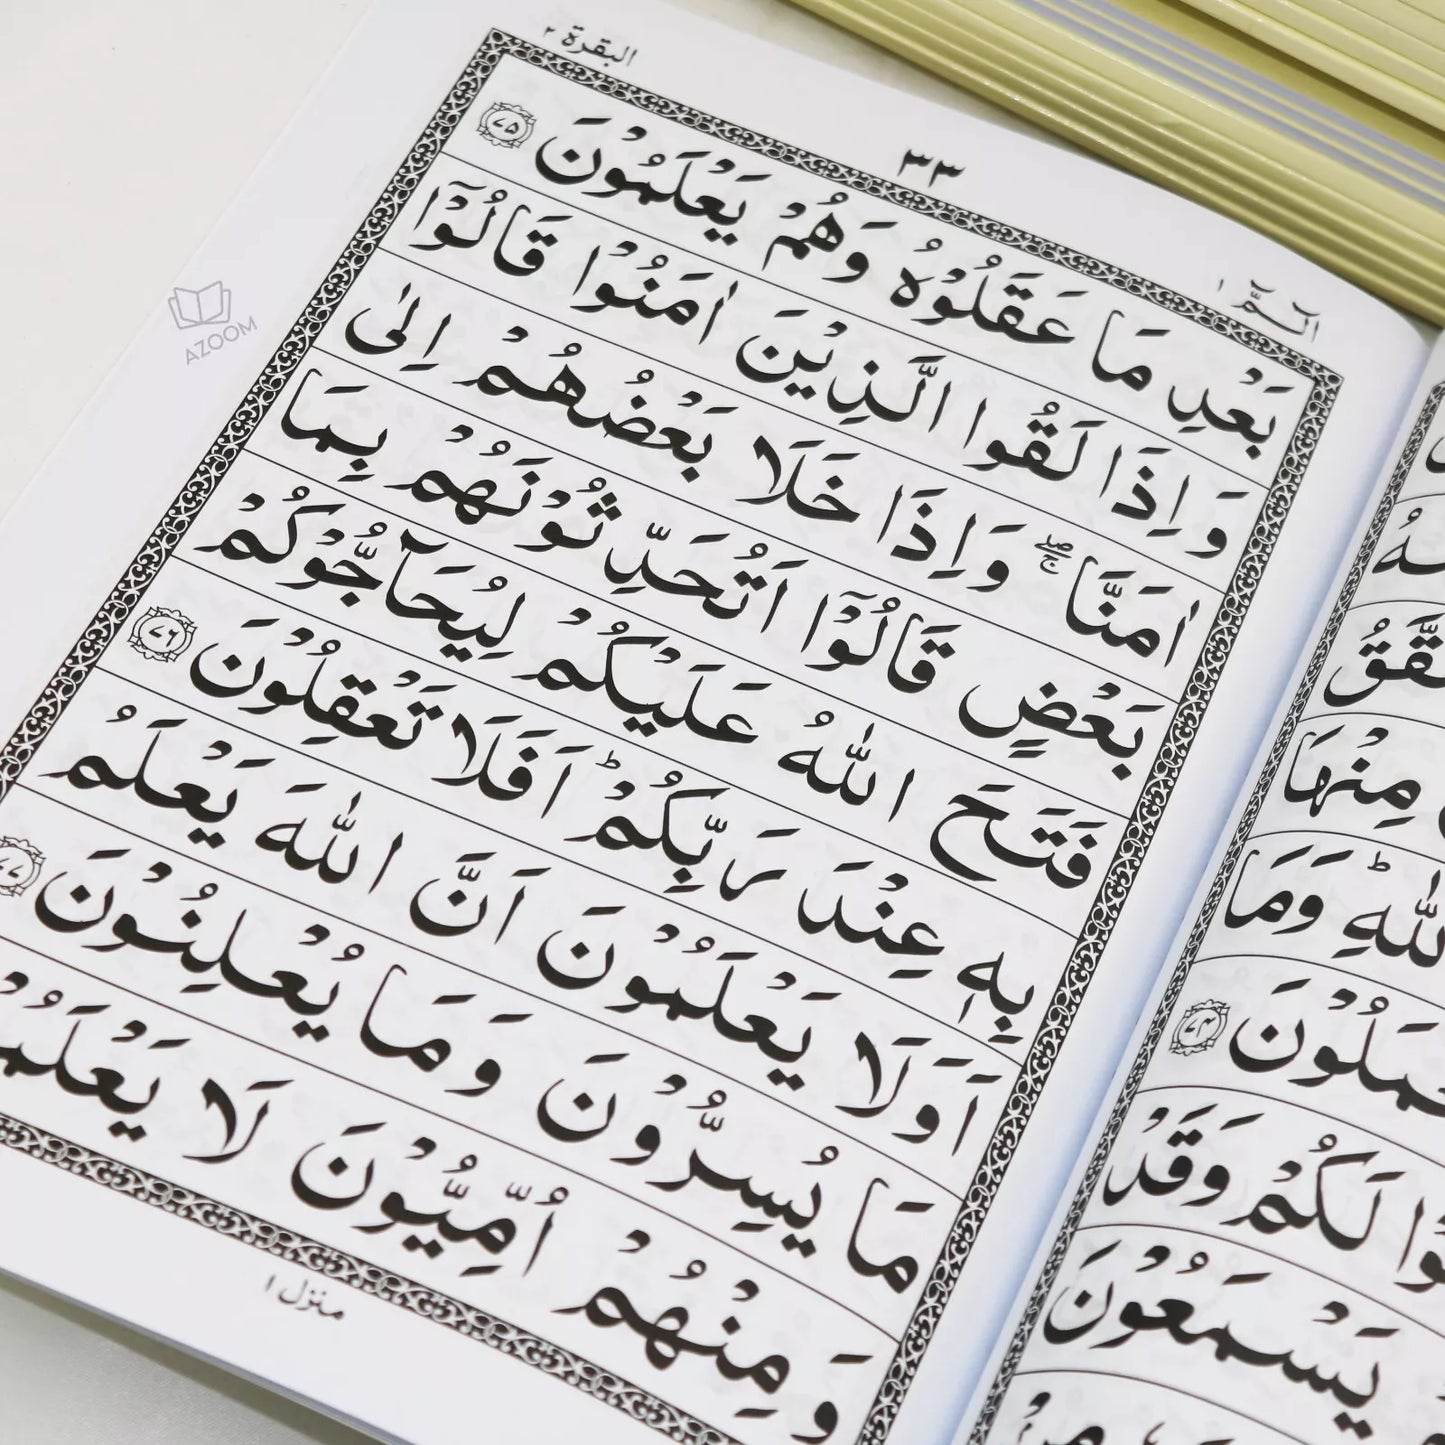 البقرة ٢
٣٣
الٓمّٓ ١
بَعْدِ مَا عَقَلُوْهُ وَهُمْ يَعْلَمُوْنَ ﴿٧٥﴾
وَاِذَا لَقُوا الَّذِيْنَ اٰمَنُوْا قَالُوْٓا
اٰمَنَّا ۖۚ وَاِذَا خَلَا بَعْضُهُمْ اِلٰى
بَعْضٍ قَالُوْٓا اَتُحَدِّثُوْنَهُمْ بِمَا
فَتَحَ اللّٰهُ عَلَيْكُمْ لِيُحَآجُّوْكُمْ
بِهٖ عِنْدَ رَبِّكُمْ ؕ اَفَلَا تَعْقِلُوْنَ ﴿٧٦﴾
اَوَلَا يَعْلَمُوْنَ اَنَّ اللّٰهَ يَعْلَمُ
مَا يُسِرُّوْنَ وَمَا يُعْلِنُوْنَ ﴿٧٧﴾
وَمِنْهُمْ اُمِّيُّوْنَ لَا
منزل ١
مِنْهَا
اللّٰهِ ؕ وَمَا
﴿٧٤﴾
لَكُمْ وَقَدْ
يَسْمَعُوْنَ
AZOOM